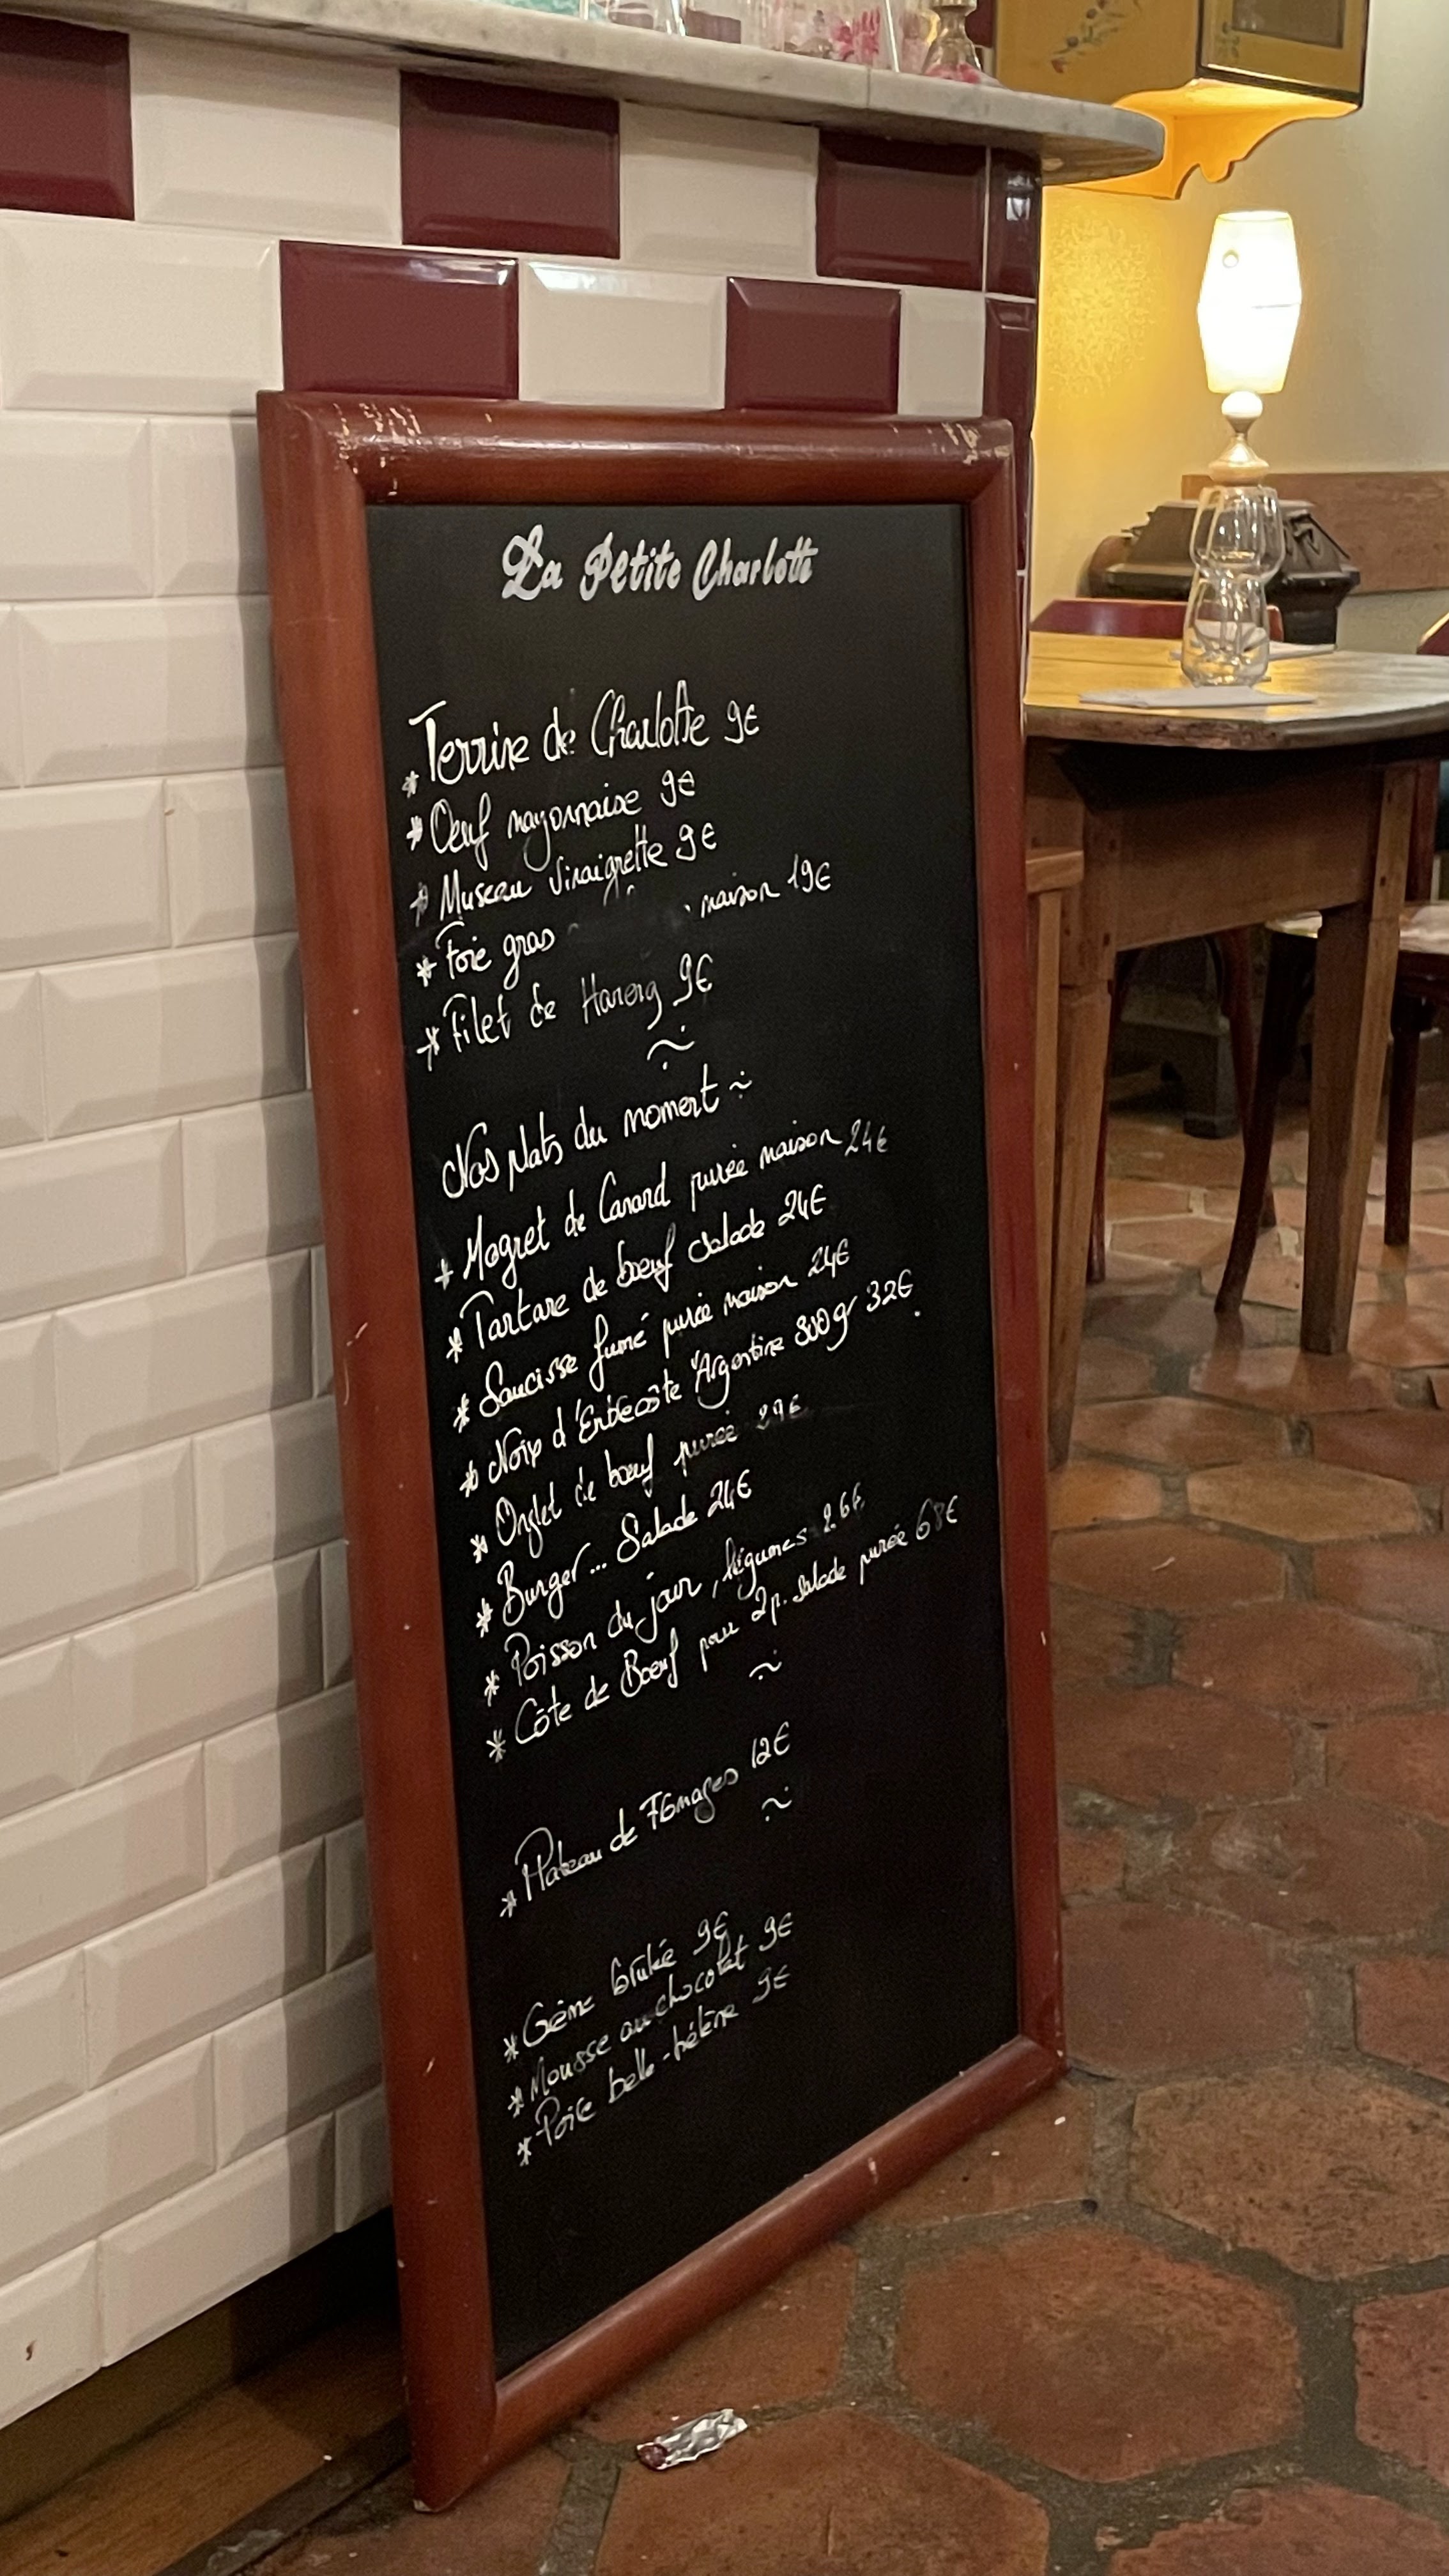 La Petite Charlotte
* Terrine de Charlotte 9€
* Oeuf mayonnaise 9€
* Museau vinaigrette 9€
* Foie gras maison 19€
* Filet de Hareng 9€
~
Nos plats du moment ~
* Magret de Canard purée maison 24€
* Tartare de bœuf salade 24€
* Saucisse fumé purée maison 24€
* Noix d'Entrecôte Argentine 300gr 32€.
* Onglet de bœuf purée 29€
* Burger... Salade 24€
* Poisson du jour, légumes 26€
* Côte de Bœuf pour 2p. salade purée 68€
~
* Plateau de Fromages 12€
~
* Crème brulée 9€
* Mousse au chocolat 9€
* Poire belle-hélène 9€